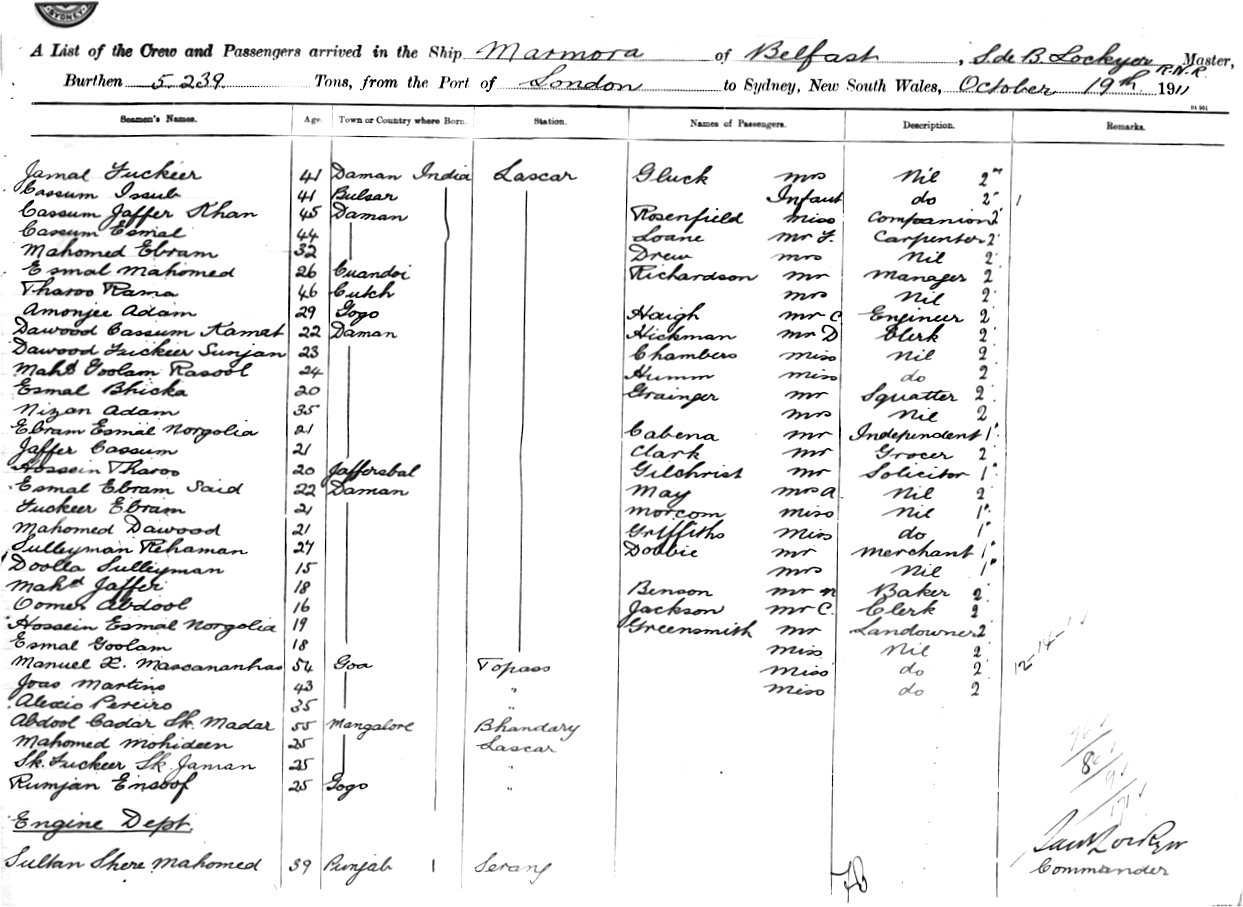 SYDNEY
A List of the Crew and Passengers arrived in the Ship Marmora of Belfast, S. de B. Lockyer R.N.R. Master,
Burthen 5239 Tons, from the Port of London to Sydney, New South Wales, October 19th 1911
Seamen's Names. Age. Town or Country where Born. Station. Names of Passengers. Description. Remarks.
Jamal Fuckeer 41 Daman India Lascar Gluck Mrs Nil 2"
Cassum Issub 41 Bulsar Infant do 2"
Cassum Jaffer Khan 45 Daman Rosenfield Miss Companion 2"
Cassum Esmal 44 Loane Mr F. Carpenter 2"
Mahomed Ebram 32 Drew Mrs Nil 2"
Esmal Mahomed 26 Richardson Mr Manager 2"
Tharoo Rama 46 Cutch Mrs Nil 2"
Amonjee Adam 29 Gogo Haigh Mr C Engineer 2"
Dawood Cassum Kamat 22 Daman Hickman Mr D Clerk 2"
Dawood Fuckeer Sunjan 23 Chambers Miss Nil 2"
Mahd Goolam Rasool 24 Humm Miss do 2
Esmal Bhicka 20 Grainger Mr Squatter 2"
Nizan Adam 35 Mrs Nil 2
Ebram Esmal Norgolia 21 Cabena Mr Independent 1"
Jaffer Cassum 21 Clark Mr Grocer 2"
Hossein Tharoo 20 Jaffersbal Gilchrist Mr Solicitor 1"
Esmal Ebram Said 22 Daman May Mrs A. Nil 2"
Fuckeer Ebram 21 Morcom Miss Nil 1"
Mahomed Dawood 21 Griffiths Miss do 1"
Sulleyman Rehaman 27 Dobbie Mr Merchant 1"
Doolla Sulleyman 15 Mrs Nil 1"
Mahd Jaffer 18 Benson Mr Baker 2"
Oomer Abdool 16 Jackson Mr C. Clerk 2"
Hossein Esmal Norgolia 19 Greensmith Mr Landowner 2"
Esmal Goolam 18 Miss Nil 2"
Manuel X. Mascananhas 54 Goa Topass Miss do 2"
Joao Martins 43 " Miss do 2
Alexio Pereiro 35 "
Abdool Cadar Sk. Madar 55 Mangalore Bhandary
Mahomed Mohideen 25 Lascar
Sk. Fuckeer Sk. Jaman 25 "
Rumjan Ensoof 25 Gogo "
Engine Dept.
Sultan Shere Mahomed 39 Punjab Serang
Commander